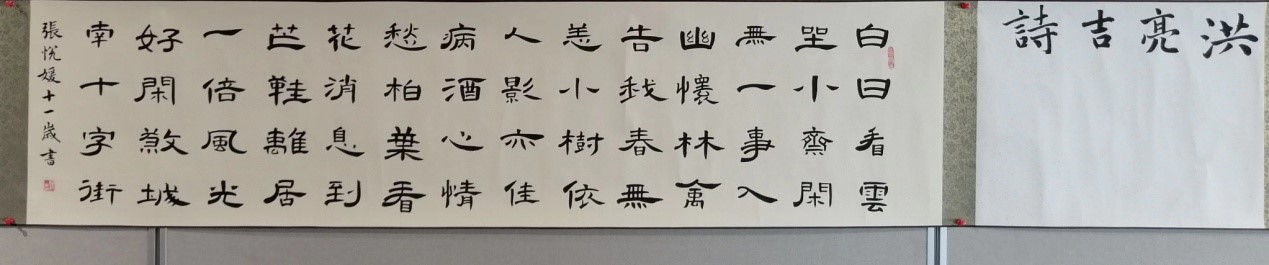 洪亮吉詩
白日看雲
坐小齋閑
無一事入
幽懷林禽
告我春無
恙小樹依
人影亦佳
病酒心情
愁柏葉看
花消息到
芒鞋離居
一倍風光
好閑煞城
南十字街
張悅媛十一歲書